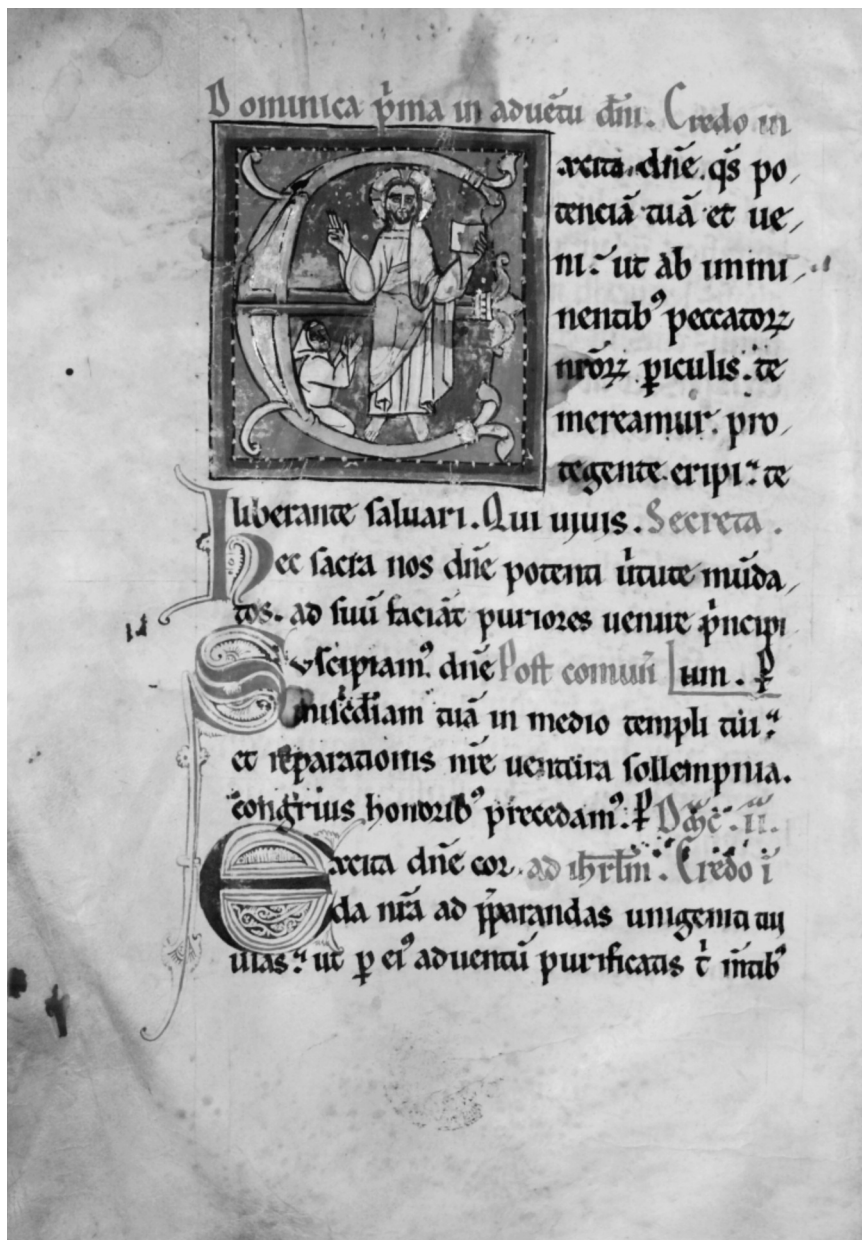 Dominica p̍ma in aduētu dn̄i. Credo in
Excita dn̄e. qs̄ po
tenciā tuā et ue
ni. ut ab immi
nentibꝰ peccatoꝝ
nr̄oꝝ ꝑiculis. te
mereamur. pro
tegente. eripi. te
liberante saluari. Qui uiuis. Secreta.
Hec sacra nos dn̄e potenti u̍tute mūda
tos. ad suū faciāt puriores uenire p̍ncipi
Suscipiamꝰ dn̄e Post comuń um. ꝑ
mise̍diam tuā in medio templi tui.
et reparationis nr̄e uentura sollempnia.
congruis honoribꝰ precedamꝰ. ꝑ Dn̄ic̄. ii.
Excita dn̄e cor ad ihrl̄m. Credo ī
da nr̄a ad p̄parandas unigeniti tui
uias. ut ꝑ eiꝰ aduentū purificatis t̍ mētibꝰ